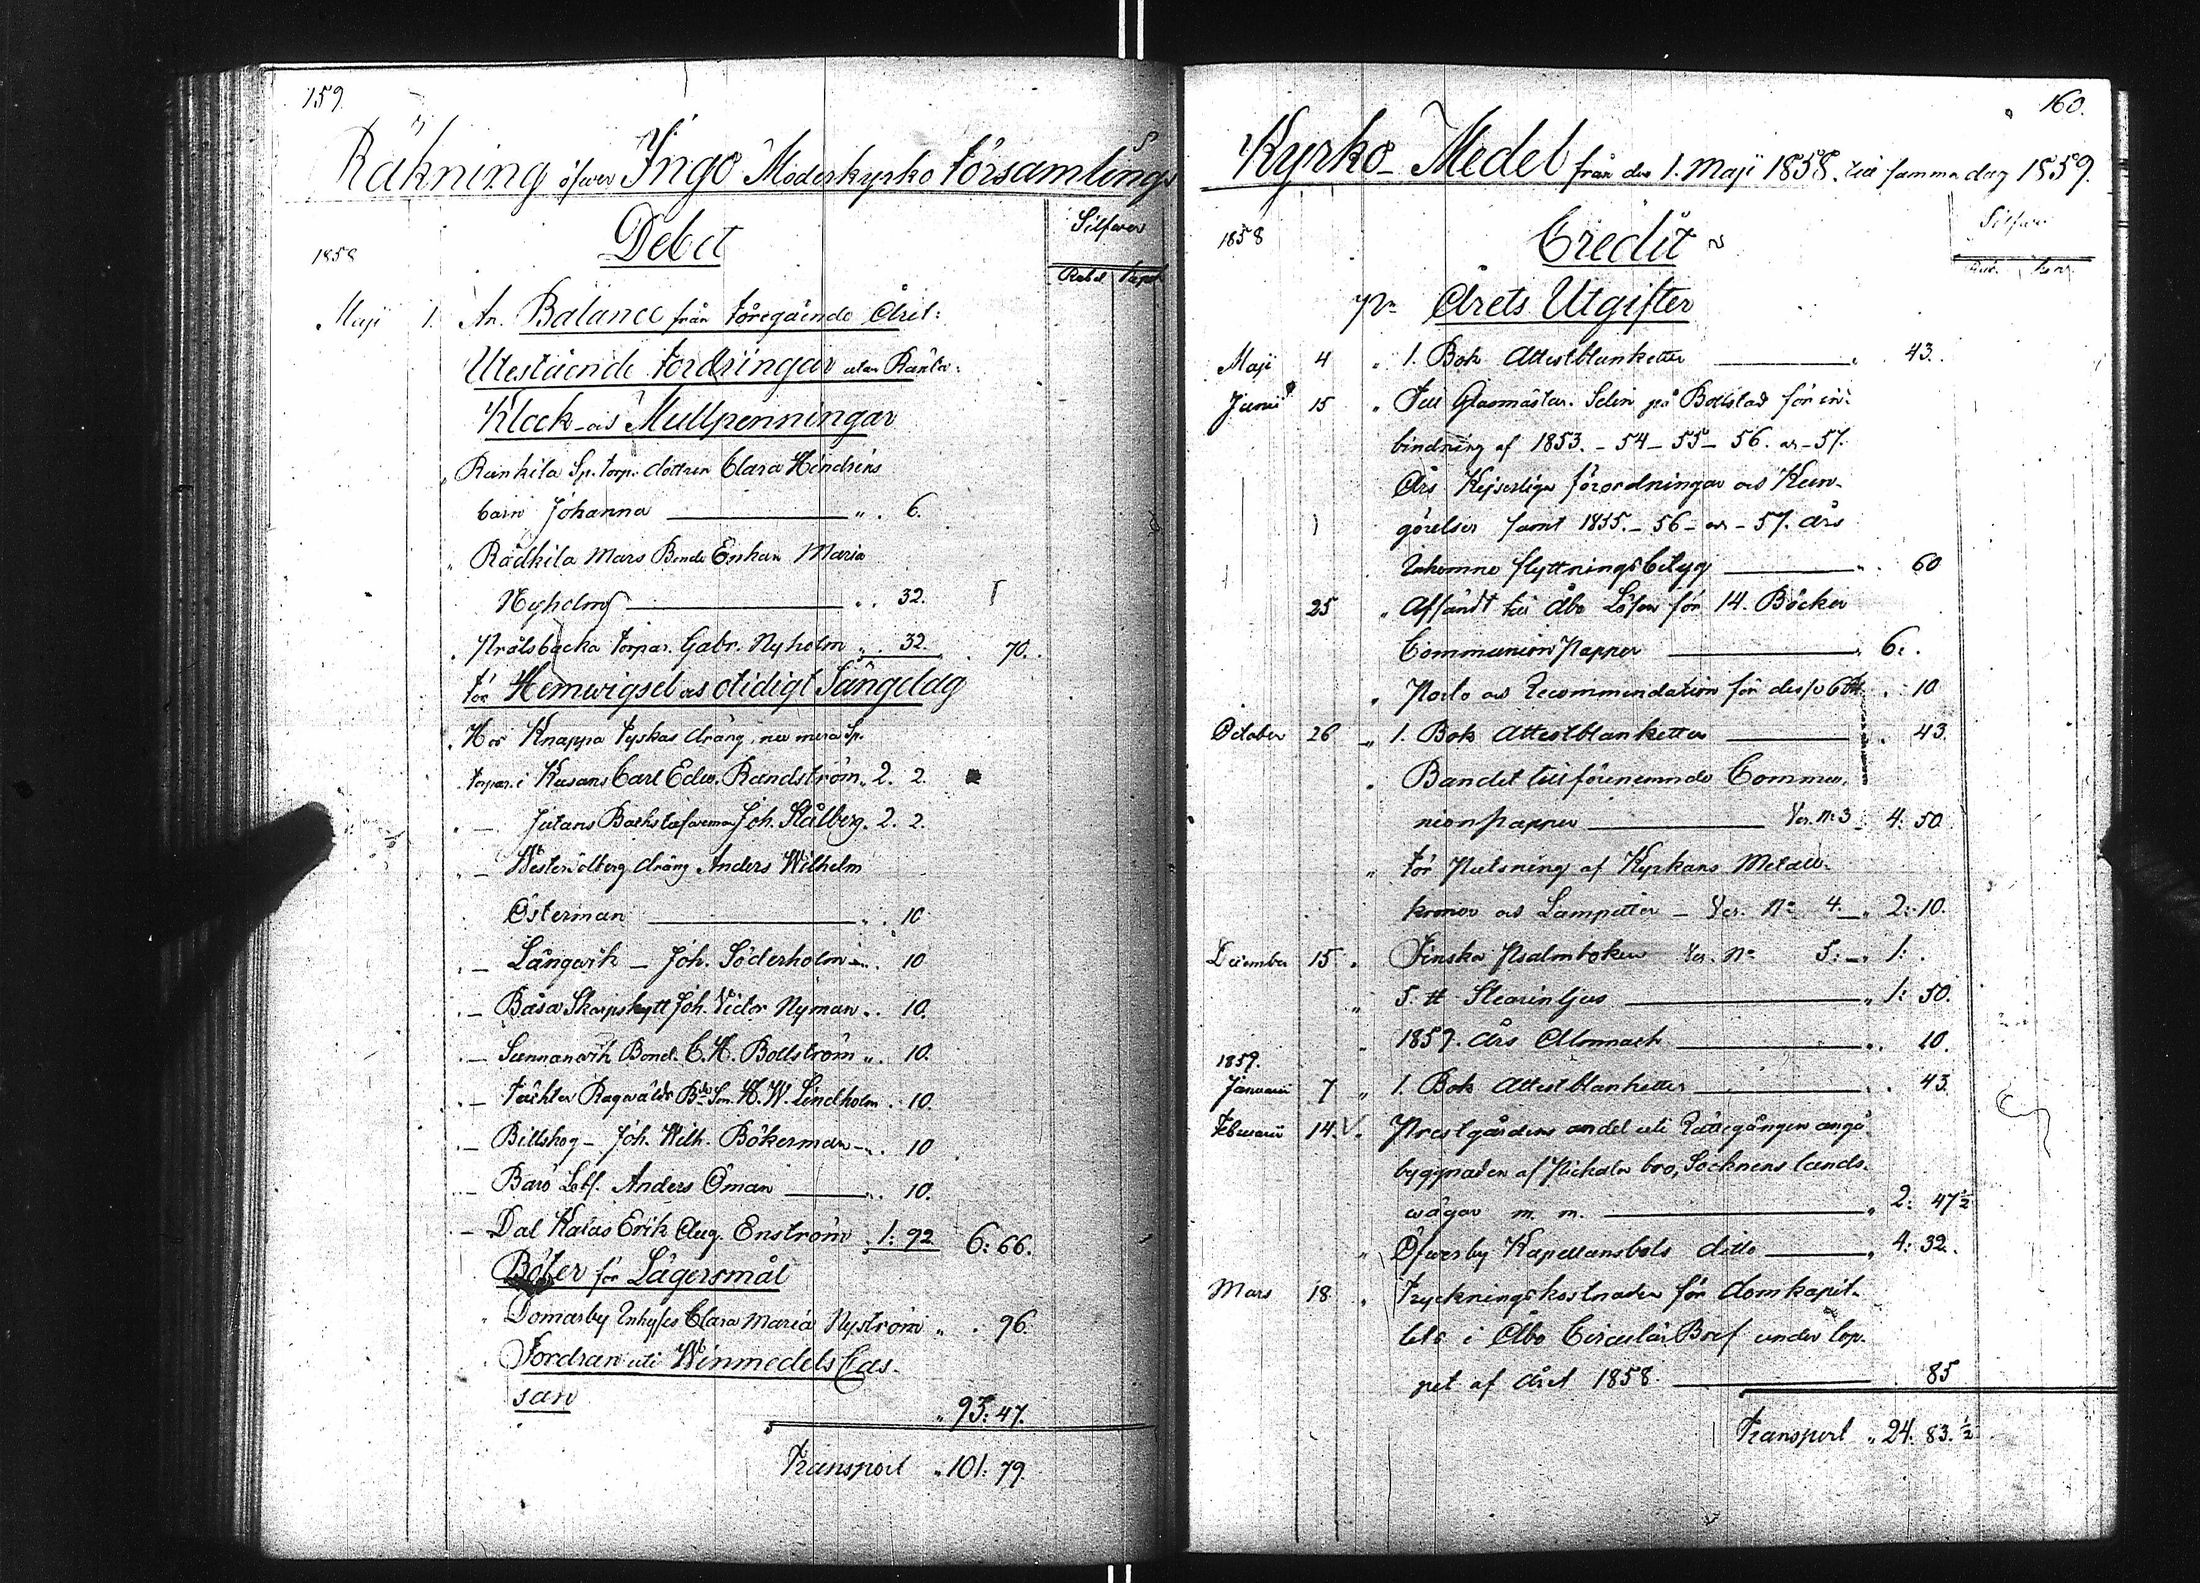 159.
Räkning öfwer Ingo Moderkyrko församlings
Debet
Silfwer
Rubel Kop.
1858
Maji 1. An. Balance från föregående Året:
Utestående fordringar utan Ränta:
Klock- och Mullpenningar
" Rankila Sp. torp. dottren Clara Hindrics
barn Johanna — " . 6.
" Rådkila Mars Bonde Enkan Maria
Nyholm — " . 32.
" Prålsbacka torpar. Gabr. Nyholm " . 32. . 70.
för Hemwigsel och otidigt Sängelag
" Hos Knappa Tyskas dräng, nu mera Sp.
torpar. i Kusans Carl Edw. Randström " 2. 2.
" — Jutans Backstufweman Joh. Stålberg. 2. 2.
" — Westerkulberg dräng Anders Wilhelm
Österman — " . 10.
" — Långwik — Joh. Söderholm — " . 10
" — Båsa Skarpskytt Joh. Victor Nyman " . 10.
" — Sunnanwik Bond. C. H. Bollström " . 10.
" — Täckter Ragwalds Bde Son. H. W. Lindholm . 10.
" — Billskog — Joh. Wilh. Bökerman — " . 10
" — Barö Lots. Anders Öman — " . 10.
" — Dal Kalas Erik Aug. Enström " 1: 92. 6: 66.
Böter för Lägersmål
" Domarby Inhyses Clara Maria Nyström " . 96.
Fordran uti Winmedels Cas-
san " 93: 47.
Transport " 101: 79.
160.
Kyrko- Medel från den 1. Maji 1858. till samma dag 1859.
Credit
Silfwer
Rub. Kop.
1858
Pr Årets Utgifter
Maji 4 " 1. Bok Attestblanketter — " . 43.
Junii 15 " Till Glasmästar. Selin på Bollstad för in-
bindning af 1853. - 54 - 55 - 56. och - 57.
Års Kejserliga förordningar och Kun-
görelser samt 1855. - 56 - och - 57. års
Inkomne flyttningsbetyg — " . 60
25 " Afsändt till Åbo Lösen för 14. Böcker
Communion Papper — " 6: .
" Porto och Recommendation för dessa 6 . 10
October 26 " 1. Bok Attestblanketter — " . 43.
" Bandet till förenemnde Commu-
nionpapper — Ver. No 3 " 4: 50
" för Putsning af Kyrkans Metall-
kronor och Lampetter — Ver. No 4. — " 2: 10.
December 15 " Finska Psalmboken Ver. No 5: — " 1: .
" 5. ℔ Stearin ljus — " 1: 50.
" 1859. års Almanach — " . 10.
1859.
Januarii 7 " 1. Bok Attestblanketter — " . 43.
Februarii 14. " Prestgårdens andel uti Rättegången angå.
byggnaden af Pickala bro, Socknens lands-
wägar m. m. — " 2: 47½
" Öfwerby Kapellansbols ditto — " 4: 32.
Mars 18 " Tryckningskostnader för domkapit-
lets i Åbo Circulär Bref under lop-
pet af året 1858. — . 85
Transport " 24: 83.½